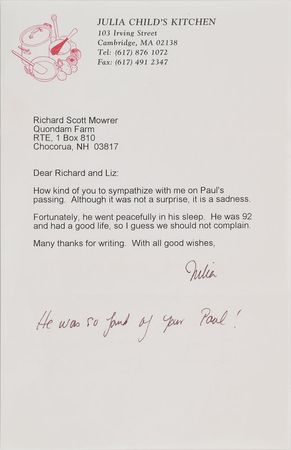 JULIA CHILD'S KITCHEN
103 Irving Street
Cambridge, MA 02138
Tel: (617) 876 1072
Fax: (617) 491 2347
Richard Scott Mowrer
Quondam Farm
RTE, 1 Box 810
Chocorua, NH 03817
Dear Richard and Liz:
How kind of you to sympathize with me on Paul's
passing. Although it was not a surprise, it is a sadness.
Fortunately, he went peacefully in his sleep. He was 92
and had a good life, so I guess we should not complain.
Many thanks for writing. With all good wishes,
Julia
He was so fond of your Paul!